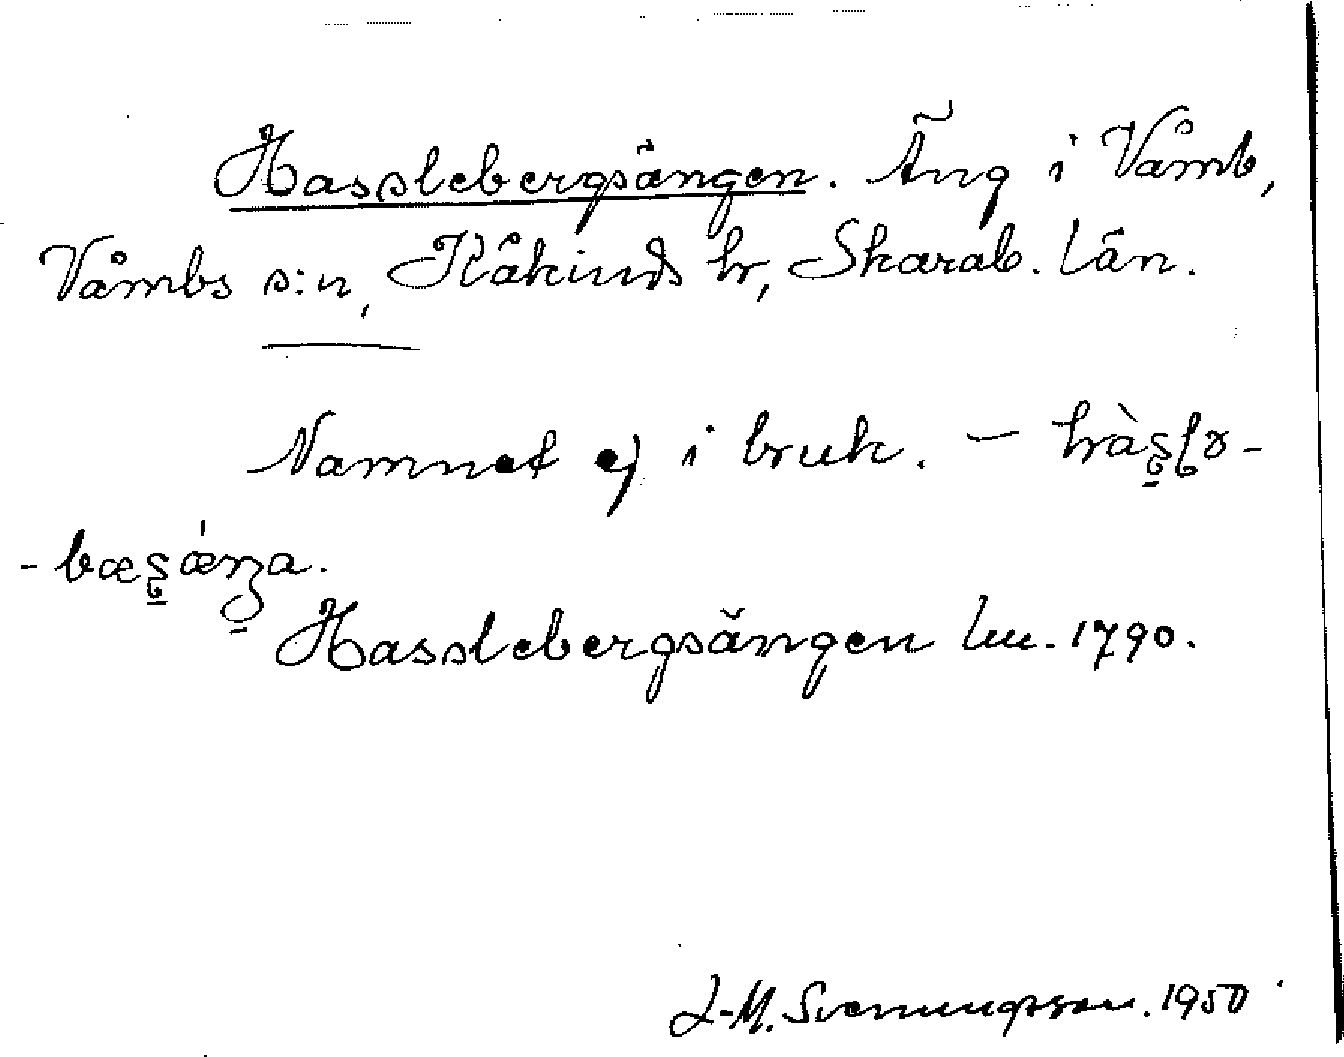 Hasslebergsängen. Äng i Våmb,
Våmbs s:n, Kåkinds hr, Skarab. län.
Namnet ej i bruk. —
Hasslebergsängen lm. 1790.
J-M. Svenungsson. 1950